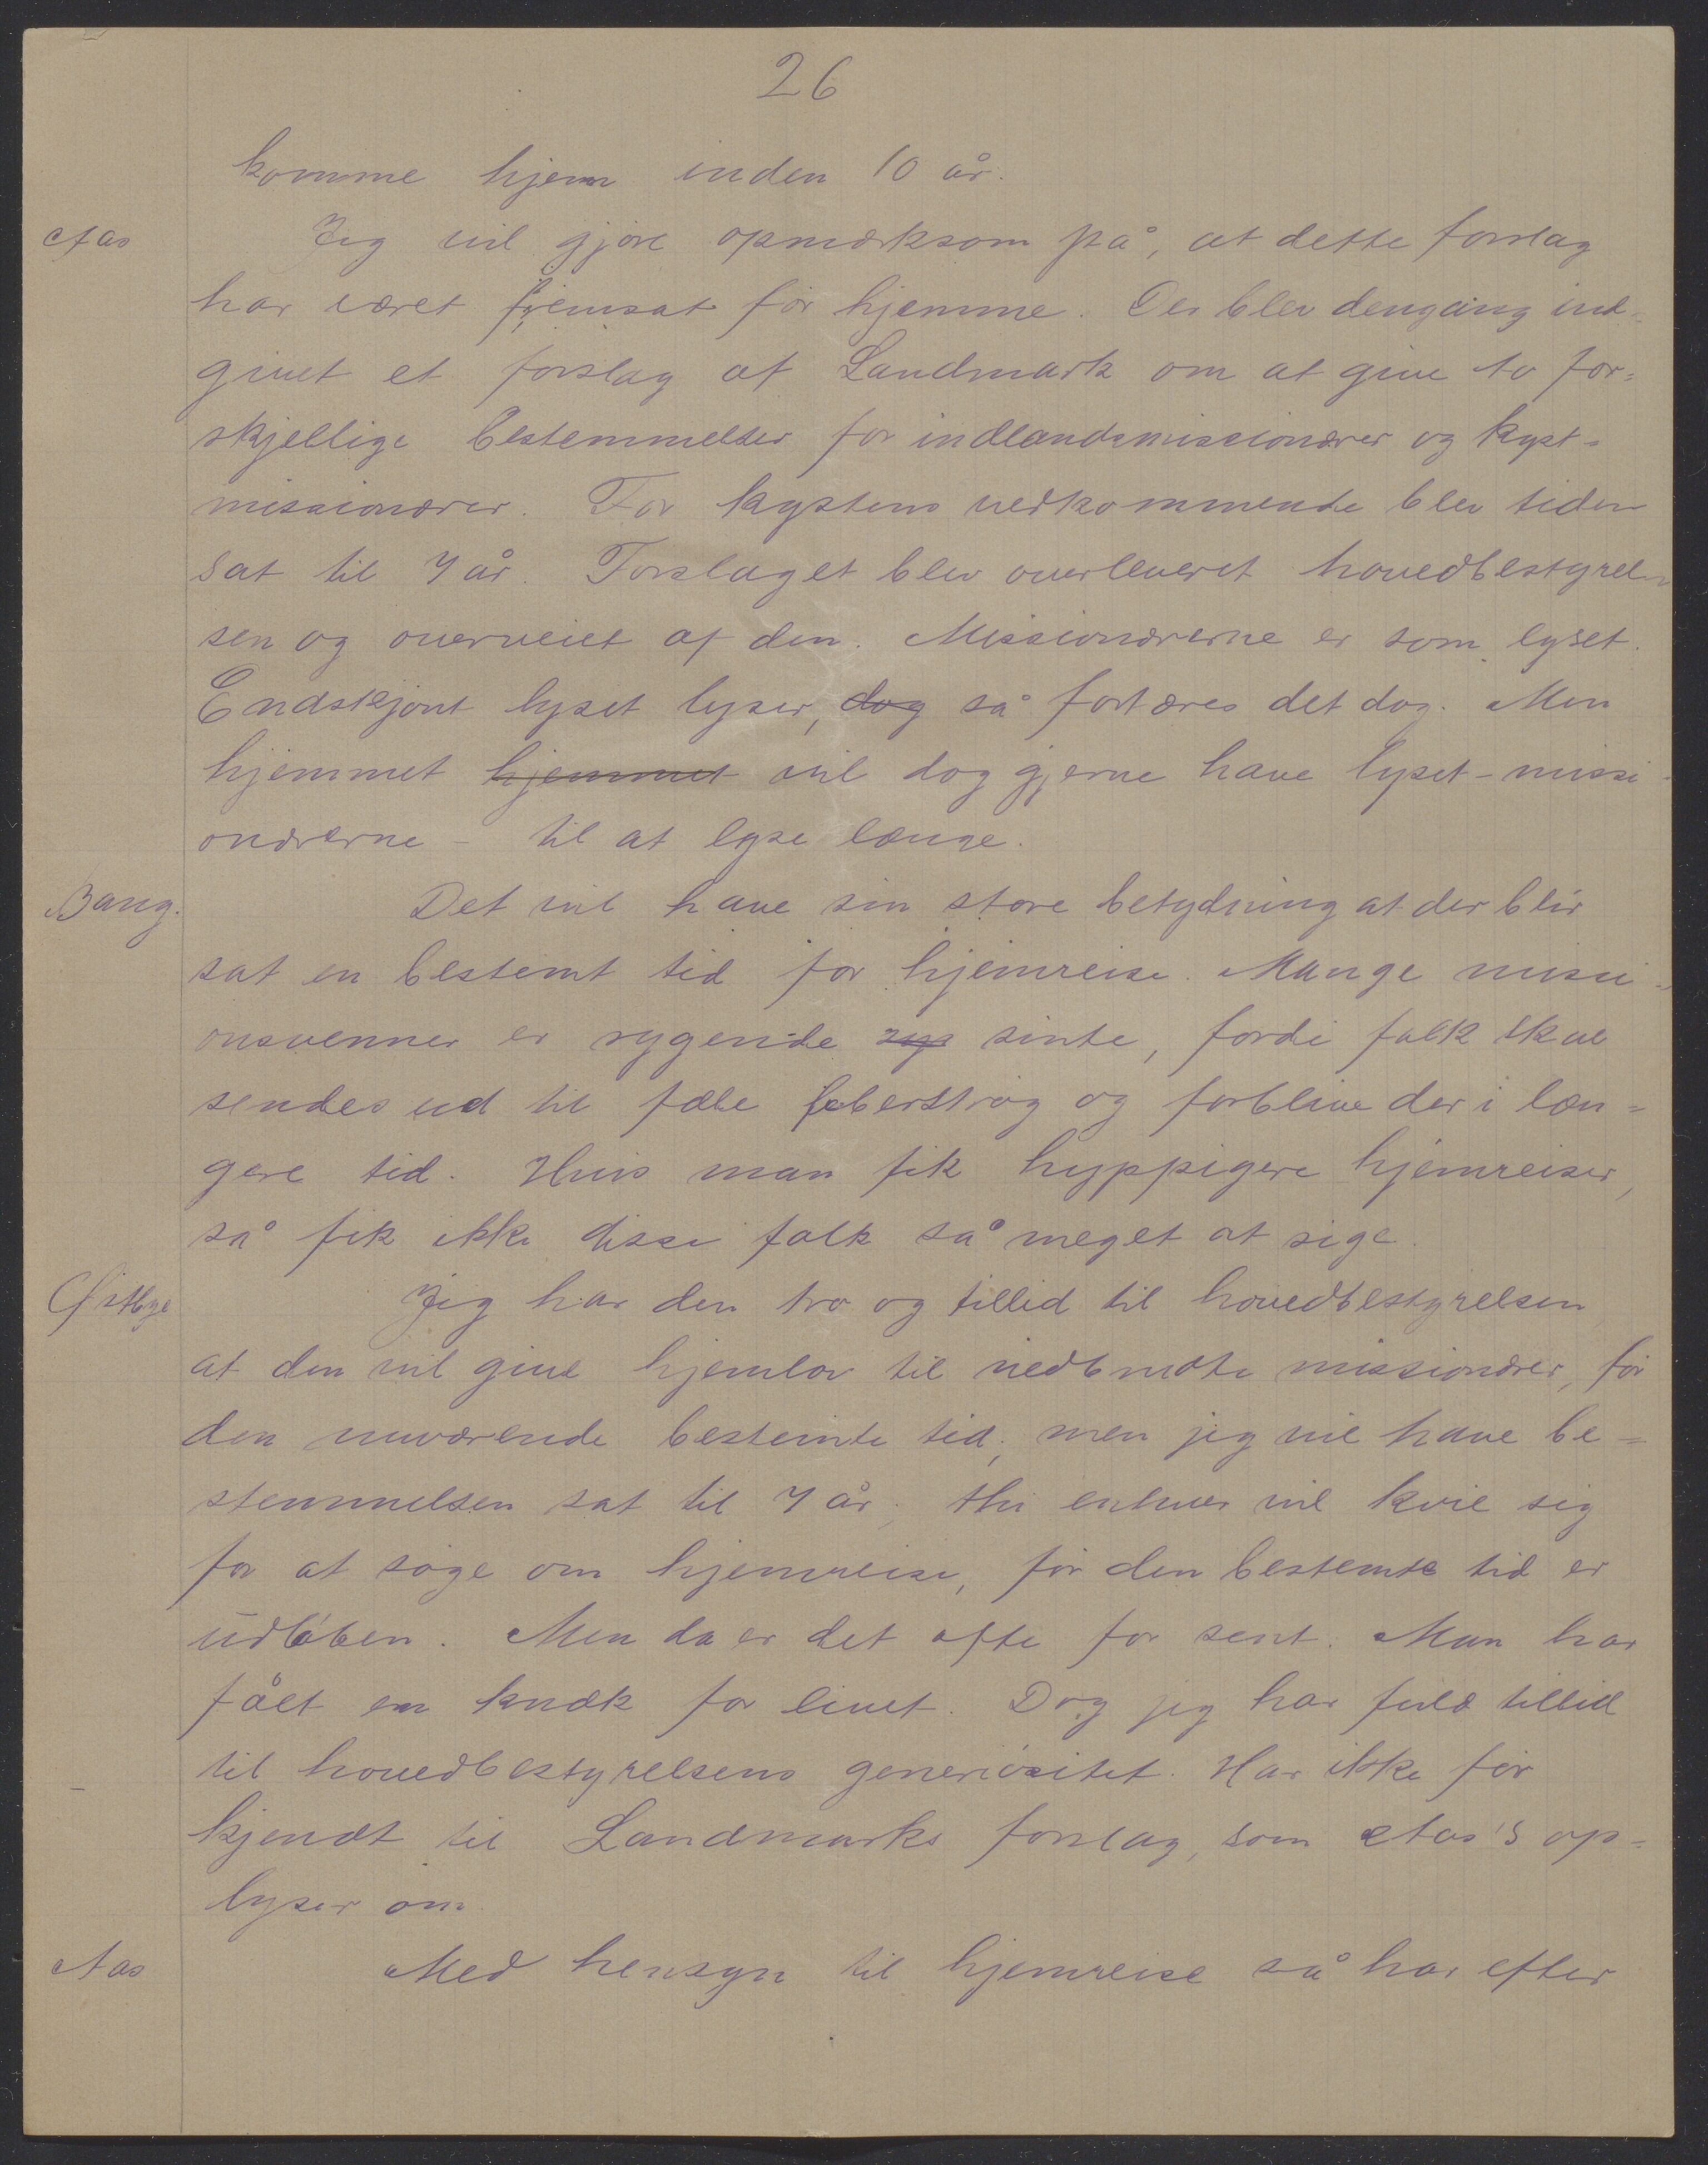 26
komme hjem inden 10 år.
Aas Jeg vil gjøre opmærksom på, at dette forslag
har været fremsat før hjemme. Der blev dengang ind-
givet et forslag af Landmark om at give to for-
skjellige bestemmelser for indlandsmissionærer og kyst-
missionærer. For kystens vedkommende blev tiden
sat til 7 år. Forslaget blev overleveret hovedbestyrel-
sen og overveiet af den. Missionærerne er som lyset.
Endskjønt lyset lyser, dog så fortæres det dog. Men
hjemmet hjemmet vil dog gjerne have lyset - missi-
onærerne - til at lyse længe.
Bang. Det vil have sin store betydning at der blir
sat en bestemt tid for hjemreise. Mange missi-
onsvenner er rygende syr sinte, fordi folk skal
sendes ud til fæle feberstrøg og forblive der i læn-
gere tid. Hvis man fik hyppigere hjemreiser,
så fik ikke disse folk så meget at sige.
Østbye Jeg har den tro og tillid til hovedbestyrelsen,
at den vil give hjemlov til nedbrudte missionærer, før
den nuværende bestemte tid, men jeg vil have be-
stemmelsen sat til 7 år; thi enhver vil kvie sig
for at søge om hjemreise, før den bestemte tid er
udløben. Men da er det ofte for sent. Man har
fået en knæk for livet. Dog jeg har fuld tillid
til hovedbestyrelsens generiøsitet. Har ikke før
kjendt til Landmarks forslag, som Aas's op-
lyser om.
Aas Med hensyn til hjemreise så har efter